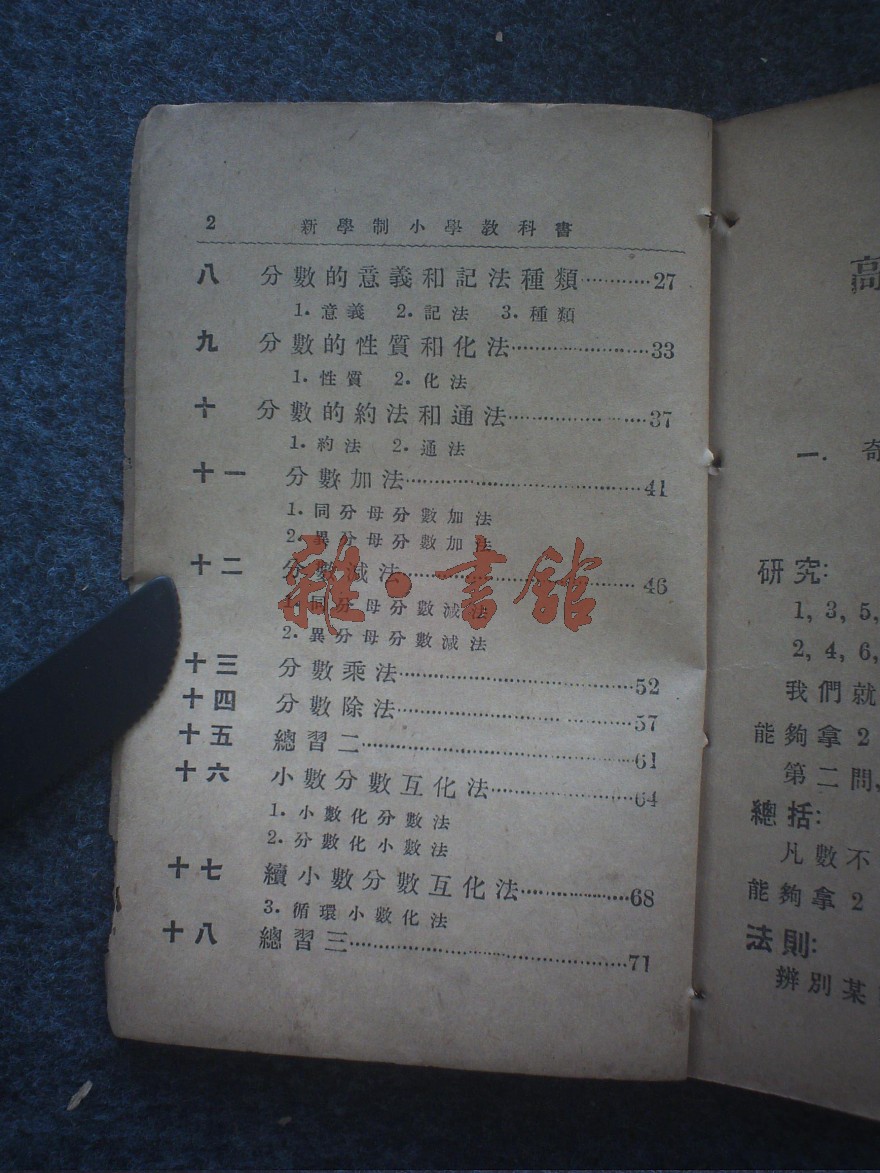 2 新學制小學教科書
八 分數的意義和記法種類…………27
1.意義 2.記法 3.種類
九 分數的性質和化法…………33
1.性質 2.化法
十 分數的約法和通法…………37
1.約法 2.通法
十一 分數加法…………41
1.同分母分數加法
2.異分母分數加法
十二 分數減法…………46
1.同分母分數減法
2.異分母分數減法
十三 分數乘法…………52
十四 分數除法…………57
十五 總習二…………61
十六 小數分數互化法…………64
1.小數化分數法
2.分數化小數法
十七 續小數分數互化法…………68
3.循環小數化法
十八 總習三…………71
雜·書館
高
一. 奇
研究:
1, 3, 5,
2, 4, 6,
我們就
能夠拿2
第二問,
總括:
凡數不
能夠拿2
法則:
辨別某